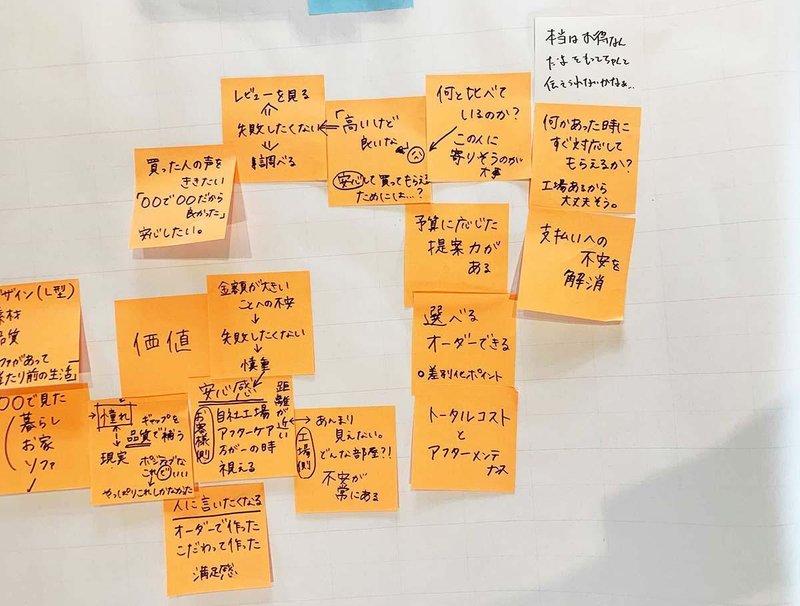 本当はお得なん
だよをもっとちゃんと
伝えられないかなぁ…
レビューを見る
⇑
失敗したくない
⇓
調べる
「高いけど
良いな
安心して買ってもらえる
ためには…?
何と比べて
いるのか?
この人に
寄りそうのが
大事
何かあった時に
すぐ対応して
もらえるか?
工場あるから
大丈夫そう。
買った人の声を
ききたい
「〇〇で〇〇だから
良かった」
安心したい。
予算に応じた
提案力が
ある
支払いへの
不安を
解消
デザイン(L型)
素材
品質
ソファがあって
当たり前の生活」
価値
金額が大きい
ことへの不安
↓
失敗したくない
↓
慎重
選べる
オーダーできる
○差別化ポイント
〇〇で見た
暮らし
お家
ソファ
↓
憧れ
現実
ギャップを
品質で補う
ポジティブな
これどいい
やっぱりこれしかなかった
安心感
お客様側
自社工場
アフターケア
万が一の時
視える
距離が近い
工場側
あんまり
見えない。
どんな部屋?!
不安が
常にある
トータルコスト
と
アフターメンテ
ナンス
人に言いたくなる
オーダーで作った
こだわって作った
満足感